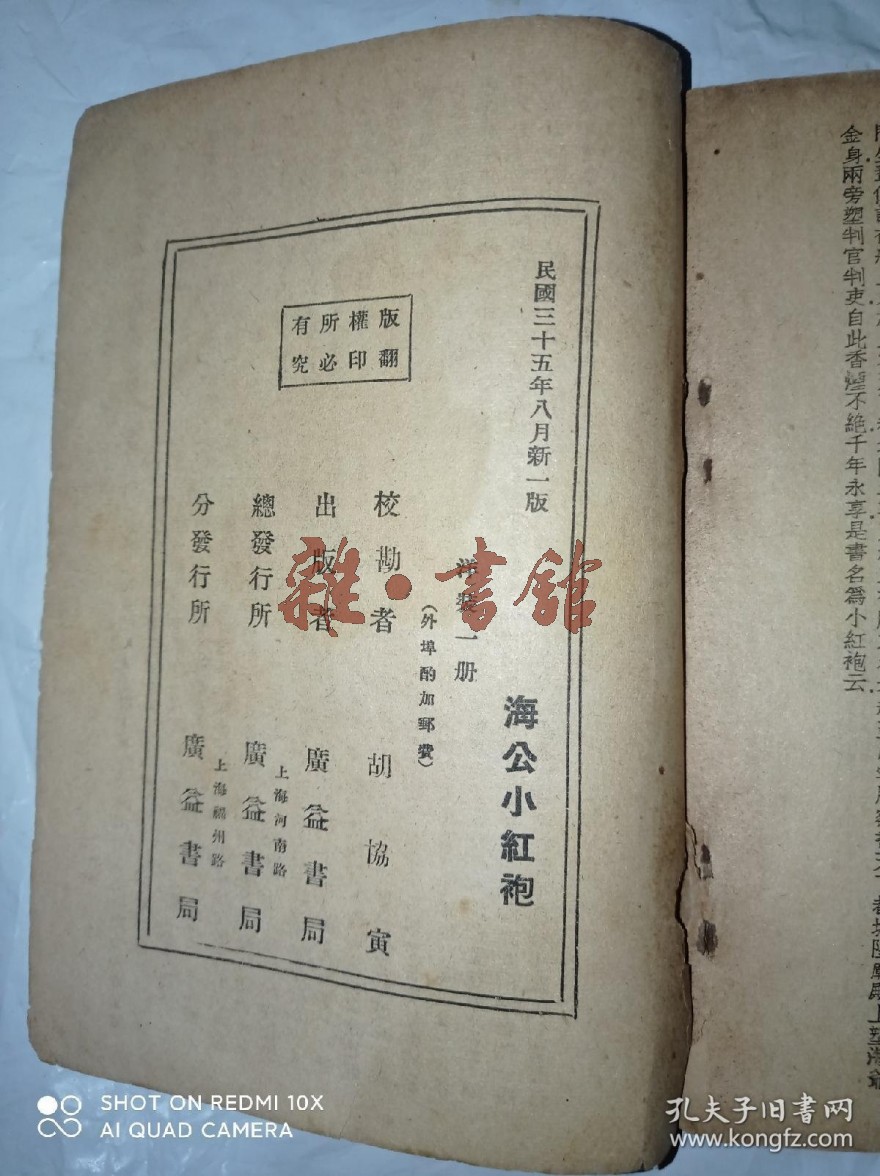 民國三十五年八月新一版
海公小紅袍
洋裝一册
(外埠酌加郵費)
校勘者 胡協寅
出版者 廣益書局
上海河南路
總發行所 廣益書局
上海福州路
分發行所 廣益書局
版權所有
翻印必究
金身兩旁塑判官判吏自此香煙不絕千年永享是書名爲小紅袍云
雜·書館
SHOT ON REDMI 10X
AI QUAD CAMERA
孔夫子旧书网
www.kongfz.com